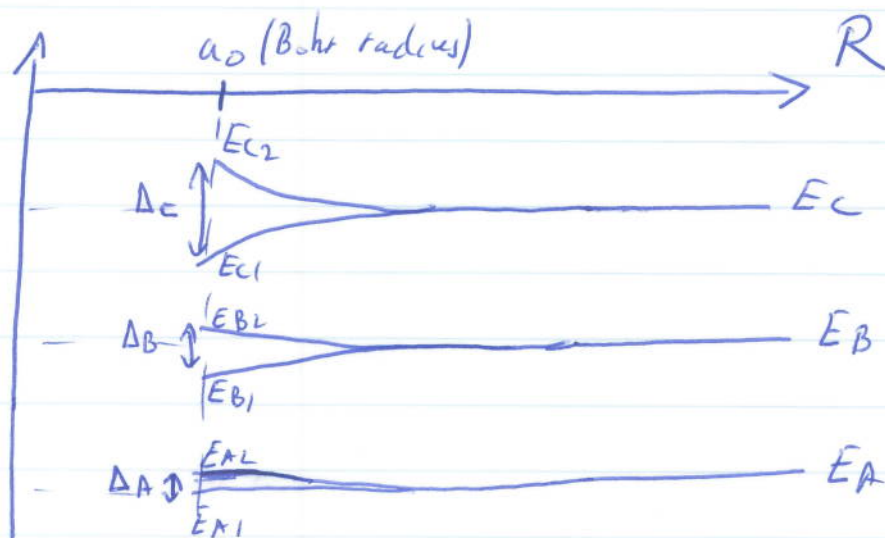 a0 (Bohr radius)
R
EC2
ΔC
EC
EC1
EB2
ΔB
EB
EB1
EA2
ΔA
EA
EA1